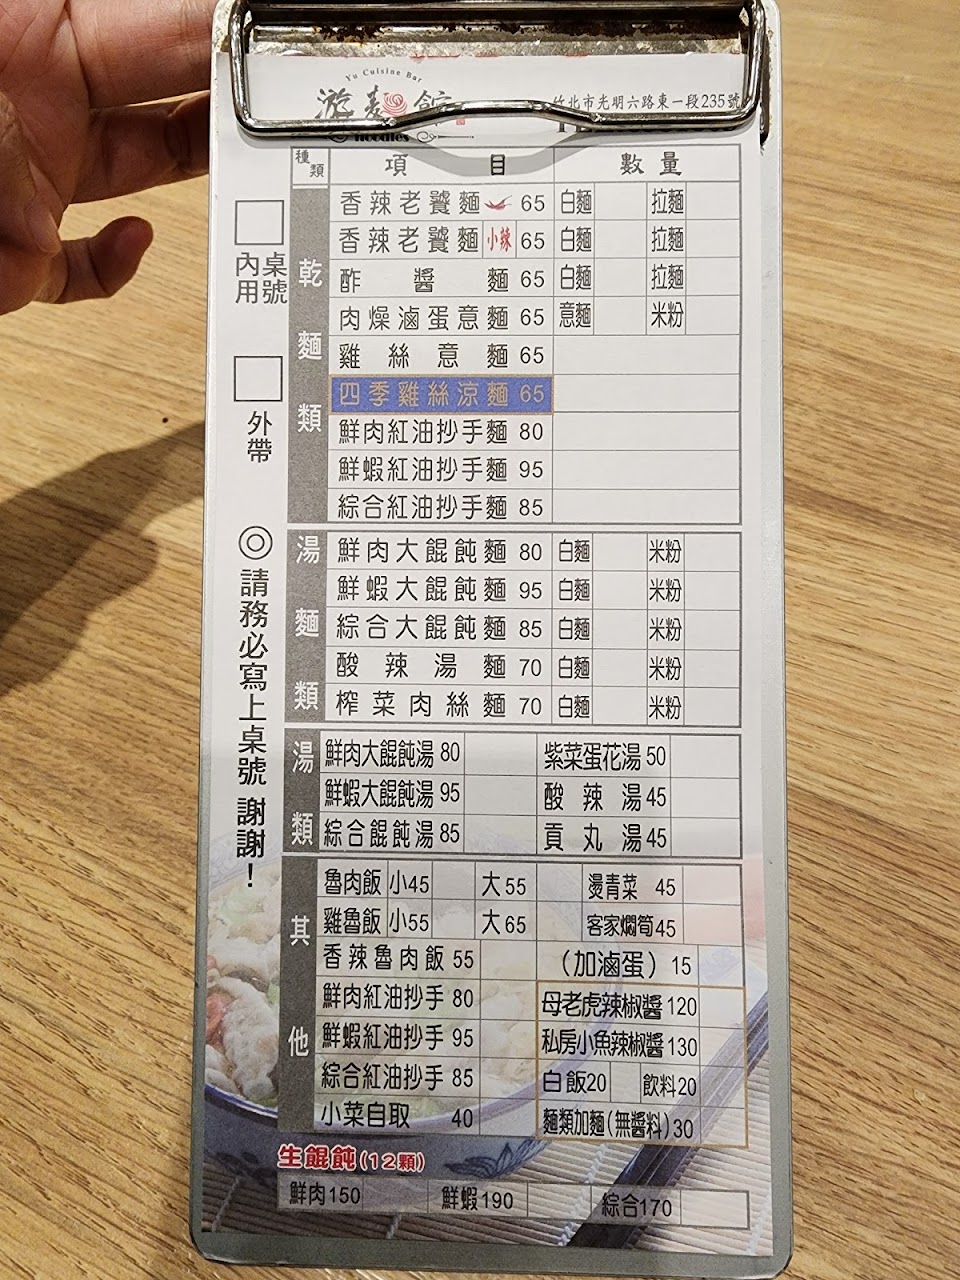 Yu Cuisine Bar
游麵館
noodles
竹北市光明六路東一段235號
種類 項目 數量
桌號 內用
外帶
◎請務必寫上桌號 謝謝！
乾麵類
香辣老饕麵 65 白麵 拉麵
香辣老饕麵 小辣 65 白麵 拉麵
酢醬麵 65 白麵 拉麵
肉燥滷蛋意麵 65 意麵 米粉
雞絲意麵 65
四季雞絲涼麵 65
鮮肉紅油抄手麵 80
鮮蝦紅油抄手麵 95
綜合紅油抄手麵 85
湯麵類
鮮肉大餛飩麵 80 白麵 米粉
鮮蝦大餛飩麵 95 白麵 米粉
綜合大餛飩麵 85 白麵 米粉
酸辣湯麵 70 白麵 米粉
榨菜肉絲麵 70 白麵 米粉
湯類
鮮肉大餛飩湯 80 紫菜蛋花湯 50
鮮蝦大餛飩湯 95 酸辣湯 45
綜合餛飩湯 85 貢丸湯 45
其他
魯肉飯 小45 大55 燙青菜 45
雞魯飯 小55 大65 客家燜筍 45
香辣魯肉飯 55 （加滷蛋）15
鮮肉紅油抄手 80 母老虎辣椒醬 120
鮮蝦紅油抄手 95 私房小魚辣椒醬 130
綜合紅油抄手 85 白飯20 飲料20
小菜自取 40 麵類加麵(無醬料)30
生餛飩(12顆)
鮮肉150 鮮蝦190 綜合170